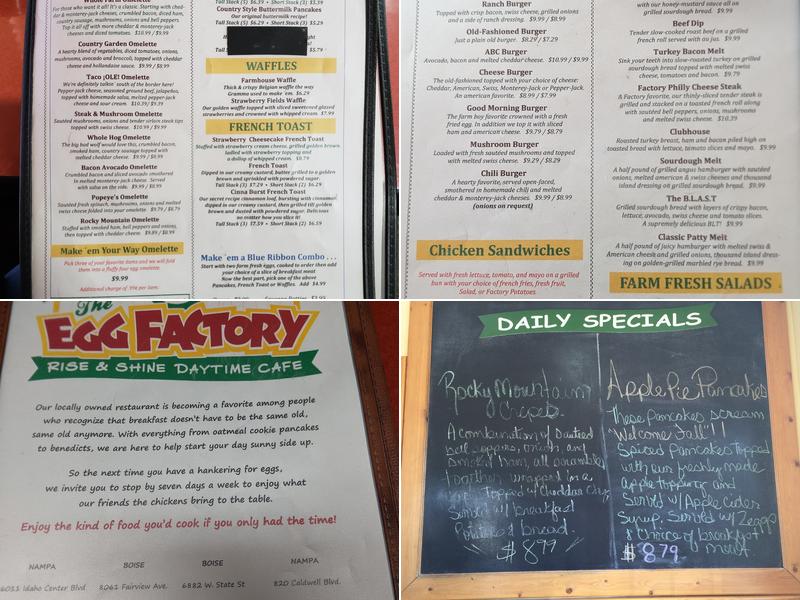 For those who want it all! It's a classic. Starting with ched-
Pepper-jack cheese, crumbled bacon, diced ham,
country sausage, mushrooms, onions and bell peppers.
Top it all off with more cheddar & monterey-jack
cheeses and diced tomatoes. $10.99 / $9.99
Country Garden Omelette
A hearty blend of vegetables, diced tomatoes, onions,
mushrooms, avocado and broccoli, topped with cheddar
cheese and hollandaise sauce. $9.99 / $8.99
Taco ¡OLE! Omelette
We're definitely talkin' south of the border here!
Pepper-jack cheese, seasoned ground beef, jalapeños,
topped with homemade salsa, melted pepper-jack
cheese and sour cream. $10.39/ $9.39
Steak & Mushroom Omelette
Sautéed mushrooms, onions and tender sirloin steak tips
topped with swiss cheese. $10.99 / $9.99
Whole Hog Omelette
The big bad wolf would love this, crumbled bacon,
smoked ham, country sausage topped with
melted cheddar cheese. $9.99 / $8.99
Bacon Avocado Omelette
Crumbled bacon and sliced avocado smothered
in melted monterey-jack cheese. Served
with salsa on the side. $9.99 / $8.99
Popeye's Omelette
Sautéed fresh spinach, mushrooms, onions and melted
swiss cheese folded into your omelette. $9.79 / $8.79
Rocky Mountain Omelette
Stuffed with smoked ham, bell peppers and onions,
then topped with cheddar cheese. $9.99 / $8.99
Make 'em Your Way Omelette
Pick three of your favorite items and we will fold
them into a fluffy four egg omelette.
$9.99
Additional charge of .99¢ per item.
Tall Stack (5) $6.39 • Short Stack (3) $5.39
Country Style Buttermilk Pancakes
Our original buttermilk recipe!
Tall Stack (5) $6.29 • Short Stack (3) $5.29
WAFFLES
Farmhouse Waffle
Thick & crispy Belgian waffle the way
Gramma used to make 'em. $6.29
Strawberry Fields Waffle
Our golden waffle topped with sliced sweetened glazed
strawberries and crowned with whipped cream. $7.99
FRENCH TOAST
Strawberry Cheesecake French Toast
Stuffed with strawberry cream cheese, grilled golden brown,
ladled with strawberry topping and
a dollop of whipped cream. $8.79
French Toast
Dipped in our creamy custard, batter grilled to a golden
brown and sprinkled with powdered sugar.
Tall Stack (3) $7.29 • Short Stack (2) $6.29
Cinna Burst French Toast
Our secret recipe cinnamon loaf, bursting with cinnamon,
dipped in our creamy custard, then grilled 'til golden
brown and dusted with powdered sugar. Delicious
no matter how you slice it!
Tall Stack (3) $7.59 • Short Stack (2) $6.59
Make 'em a Blue Ribbon Combo . . .
Start with two farm fresh eggs, cooked to order then add
your choice of slice of breakfast meat
Now the best part, pick one of the above
Pancakes, French Toast or Waffles. Add $4.99
Ranch Burger
Topped with crisp bacon, swiss cheese, grilled onions
and a side of ranch dressing. $9.99 / $8.99
Old-Fashioned Burger
Just a plain old burger. $8.29 / $7.29
ABC Burger
Avocado, bacon and melted cheddar cheese. $10.99 / $9.99
Cheese Burger
The old-fashioned topped with your choice of cheese:
Cheddar, American, Swiss, Monterey-Jack or Pepper-Jack.
An american favorite. $8.99 / $7.99
Good Morning Burger
The farm boy favorite crowned with a fresh
fried egg. In addition we top it with sliced
ham and american cheese. $9.79 / $8.79
Mushroom Burger
Loaded with fresh sautéed mushrooms and topped
with melted swiss cheese. $9.29 / $8.29
Chili Burger
A hearty favorite, served open-faced,
smothered in homemade chili and melted
cheddar & monterey-jack cheeses. $9.99 / $8.99
(onions on request)
Chicken Sandwiches
Served with fresh lettuce, tomato, and mayo on a grilled
bun with your choice of french fries, fresh fruit,
Salad, or Factory Potatoes
with our honey-mustard sauce all on
grilled sourdough bread. $9.99
Beef Dip
Tender slow-cooked roast beef on a grilled
french roll served with au jus. $9.99
Turkey Bacon Melt
Sink your teeth into slow-roasted turkey on grilled
sourdough bread topped with melted swiss
cheese, tomatoes and bacon. $9.79
Factory Philly Cheese Steak
A Factory favorite, our thinly-sliced tender steak is
grilled and stacked on a toasted french roll along
with sautéed bell peppers, onions, mushrooms
and melted swiss cheese. $10.39
Clubhouse
Roasted turkey breast, ham and bacon piled high on
toasted bread with lettuce, tomato slices and mayo. $9.99
Sourdough Melt
A half pound of grilled angus hamburger with sautéed
onions, melted american & swiss cheeses and thousand
island dressing on grilled sourdough bread. $9.99
The B.L.A.S.T
Grilled sourdough bread with layers of crispy bacon,
lettuce, avocado, swiss cheese and tomato slices.
A supremely delicious BLT! $9.99
Classic Patty Melt
A half pound of juicy hamburger with melted swiss &
American cheese and grilled onions, thousand island dress-
ing on golden-grilled marbled rye bread. $9.99
FARM FRESH SALADS
The
EGG FACTORY
RISE & SHINE DAYTIME CAFE
Our locally owned restaurant is becoming a favorite among people
who recognize that breakfast doesn't have to be the same old,
same old anymore. With everything from oatmeal cookie pancakes
to benedicts, we are here to help start your day sunny side up.
So the next time you have a hankering for eggs,
we invite you to stop by seven days a week to enjoy what
our friends the chickens bring to the table.
Enjoy the kind of food you'd cook if you only had the time!
NAMPA BOISE BOISE NAMPA
6011 Idaho Center Blvd. 8061 Fairview Ave. 6882 W. State St 820 Caldwell Blvd.
DAILY SPECIALS
Rocky Mountain
Crepes
A combination of Sauteed
bell peppers, onion, and
smoked ham, all scrambled
together wrapped in a
Topped w/ cheddar
Served w/ breakfast
Potatoes & bread.
$8.99
Apple Pie Pancakes
These pancakes scream
"Welcome Fall"!!
Spiced Pancakes topped
with our freshly made
apple topping and
Served w/ Apple Cider
Syrup. Served w/ 2 eggs
& choice of breakfast
meat
$8.79